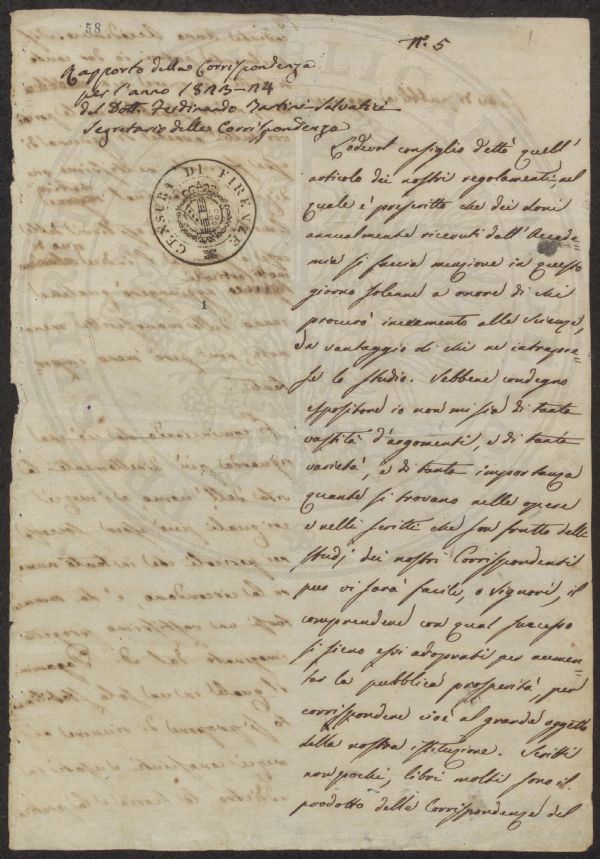 58
N.° 5
Rapporto della Corrispondenza
per l'anno 1823-24
del Dott. Ferdinando Tartini-Salvatici
Segretario delle Corrispondenze
CENSURA DI FIRENZE
1
Lodevol consiglio dettò quell'
articolo dei nostri regolamenti, nel
quale è prescritto che dei doni
annualmente ricevuti dall'Accade-
mia si faccia menzione in questo
giorno solenne a onore di chi
procurò incremento alle scienze,
da vantaggio di chi ne intrapre-
se lo studio. Sebbene condegno
espositore io non mi sia di tanta
vastità d'argomenti, e di tanta
varietà, e di tanta importanza
quanta si trovano nelle opere
e nelli scritti che son frutto delli
studj dei nostri Corrispondenti
pure vi sarà facile, o Signori, il
comprendere con qual successo
si sieno essi adoprati per aumen-
tar la pubblica prosperità, per
corrispondere cioè al grande oggetto
della nostra istituzione. Scritti
non pochi, libri molti sono il
prodotto della Corrispondenza del